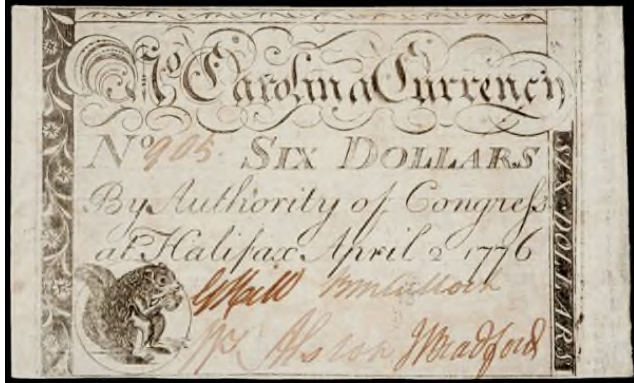 No Carolina Currency
No 905. SIX DOLLARS
By Authority of Congress
at Halifax April 2 1776
SIX DOLLARS
J Bradford